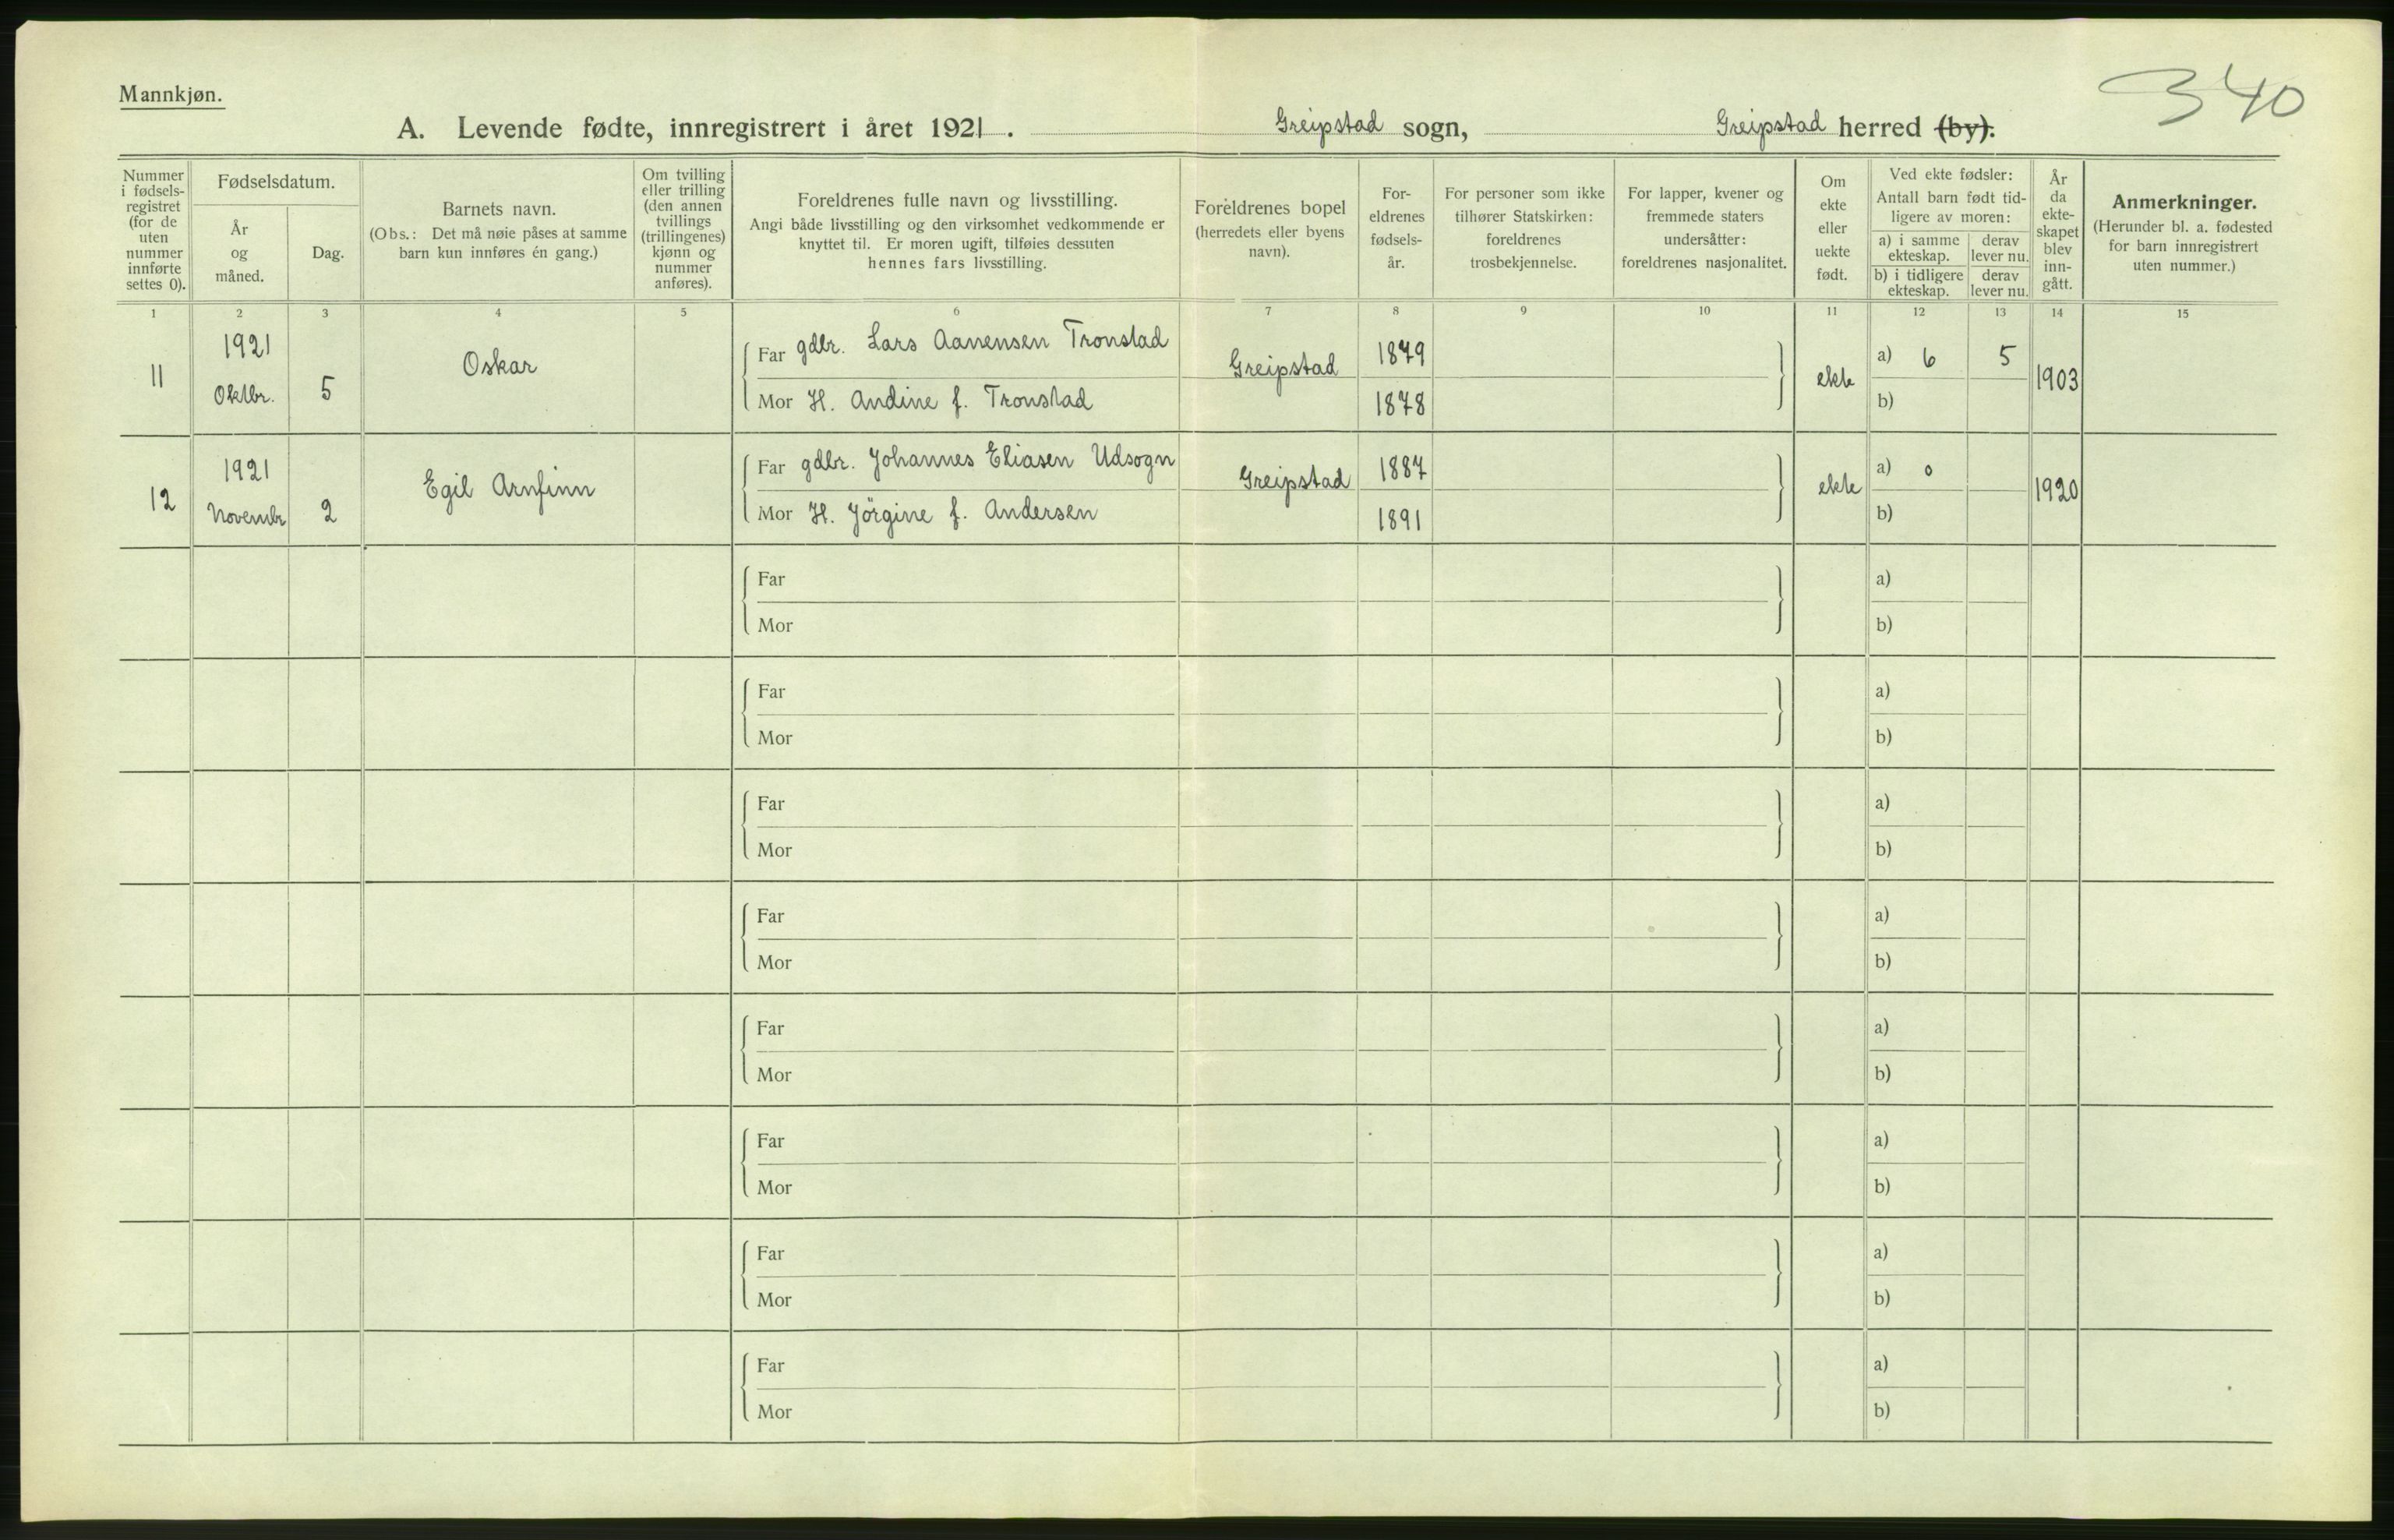 340
Mannkjøn.
A. Levende fødte, innregistrert i året 1921. Greipstad sogn, Greipstad herred (by).
Nummer i fødsels-registret (for de uten nummer innførte settes 0).
Fødselsdatum.
År og måned.
Dag.
Barnets navn.
(Obs.: Det må nøie påses at samme barn kun innføres én gang.)
Om tvilling eller trilling (den annen tvillings (trillingenes) kjønn og nummer anføres).
Foreldrenes fulle navn og livsstilling.
Angi både livsstilling og den virksomhet vedkommende er knyttet til. Er moren ugift, tilføies dessuten hennes fars livsstilling.
Foreldrenes bopel (herredets eller byens navn).
For-eldrenes fødsels-år.
For personer som ikke tilhører Statskirken: foreldrenes trosbekjennelse.
For lapper, kvener og fremmede staters undersåtter: foreldrenes nasjonalitet.
Om ekte eller uekte født.
Ved ekte fødsler:
Antall barn født tid-ligere av moren:
a) i samme ekteskap.
derav lever nu.
b) i tidligere ekteskap.
derav lever nu.
År da ekte-skapet blev inn-gått.
Anmerkninger.
(Herunder bl. a. fødested for barn innregistrert uten nummer.)
1 2 3 4 5 6 7 8 9 10 11 12 13 14 15
11 1921 Oktbr. 5 Oskar
Far gdbr. Lars Aanensen Tronstad Greipstad 1879 ekte a) 6 5 1903
Mor H. Andine f. Tronstad 1878 b)
12 1921 Novembr 2 Egil Arnfinn
Far gdbr. Johannes Eliasen Udsogn Greipstad 1887 ekte a) 0 1920
Mor H. Jörgine f. Andersen 1891 b)
Far a)
Mor b)
Far a)
Mor b)
Far a)
Mor b)
Far a)
Mor b)
Far a)
Mor b)
Far a)
Mor b)
Far a)
Mor b)
Far a)
Mor b)